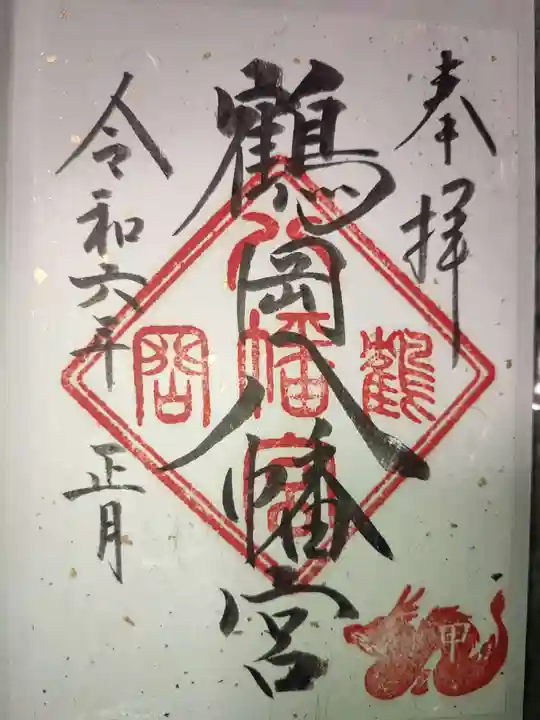 奉拝
鶴岡八幡宮
令和六年 正月
鶴
八幡宮
岡
甲